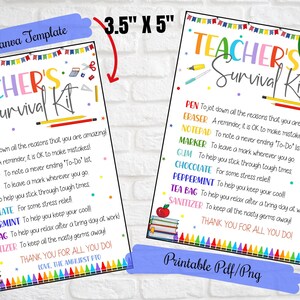 Canva Template
3.5" X 5"
HER'S
Survival Kit
To jot down all the reasons that you are amazing!
A reminder, it is OK to make mistakes!
To note a never ending "To-Do" list.
To leave a mark wherever you go
To help you stick through tough times
For some stress relief!
MINT To help you keep your cool!
AG To help you relax after a tiring day at work!
ER To keep all the nasty germs away!
THANK YOU FOR ALL YOU DO!
TEACHER'S
Survival Kit
PEN To jot down all the reasons that you are
ERASER A reminder, it is OK to make mistakes!
NOTEPAD To note a never ending "To-Do"
MARKER To leave a mark wherever you go
GUM To help you stick through tough times
CHOCOLATE For some stress relief!
PEPPERMINT To help you keep your cool!
TEA BAG To help you relax after a tiring day at
SANITIZER To keep all the nasty germs away!
THANK YOU FOR ALL YOU DO!
Printable Pdf/Png